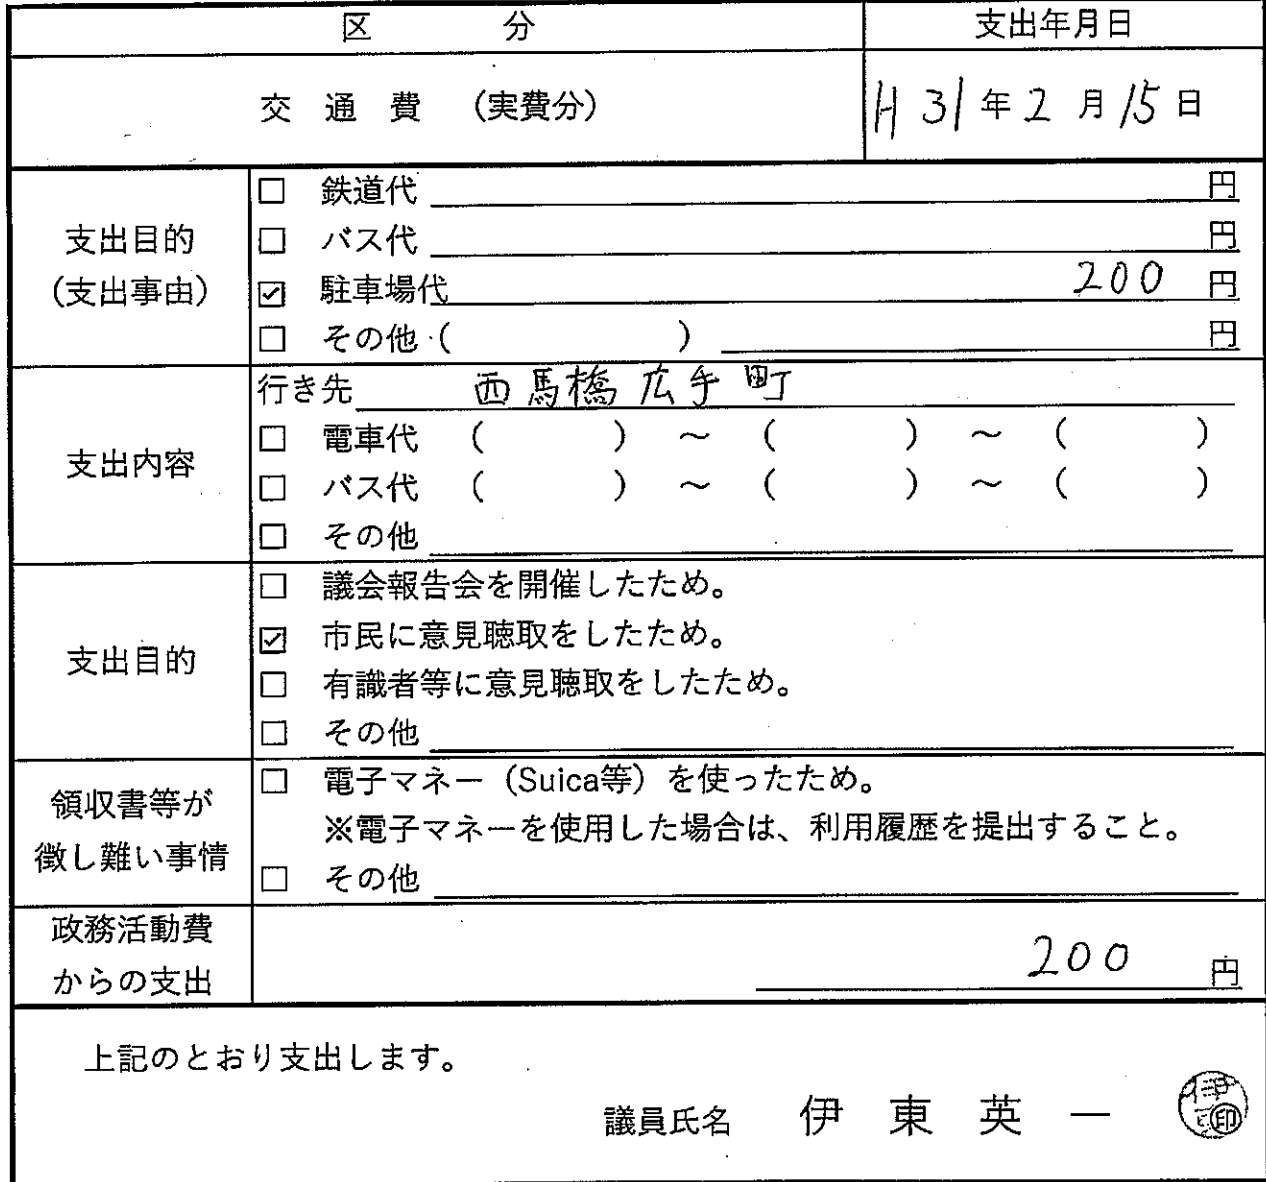 区 分 支出年月日
交 通 費 (実費分) H 31 年 2 月 15 日
支出目的
(支出事由)
□ 鉄道代 円
□ バス代 円
☑ 駐車場代 200 円
□ その他 ( ) 円
支出内容
行き先 西馬橋広手町
□ 電車代 ( ) ～ ( ) ～ ( )
□ バス代 ( ) ～ ( ) ～ ( )
□ その他
支出目的
□ 議会報告会を開催したため。
☑ 市民に意見聴取をしたため。
□ 有識者等に意見聴取をしたため。
□ その他
領収書等が
徴し難い事情
□ 電子マネー（Suica等）を使ったため。
※電子マネーを使用した場合は、利用履歴を提出すること。
□ その他
政務活動費
からの支出
200 円
上記のとおり支出します。
議員氏名 伊 東 英 一 ㊞